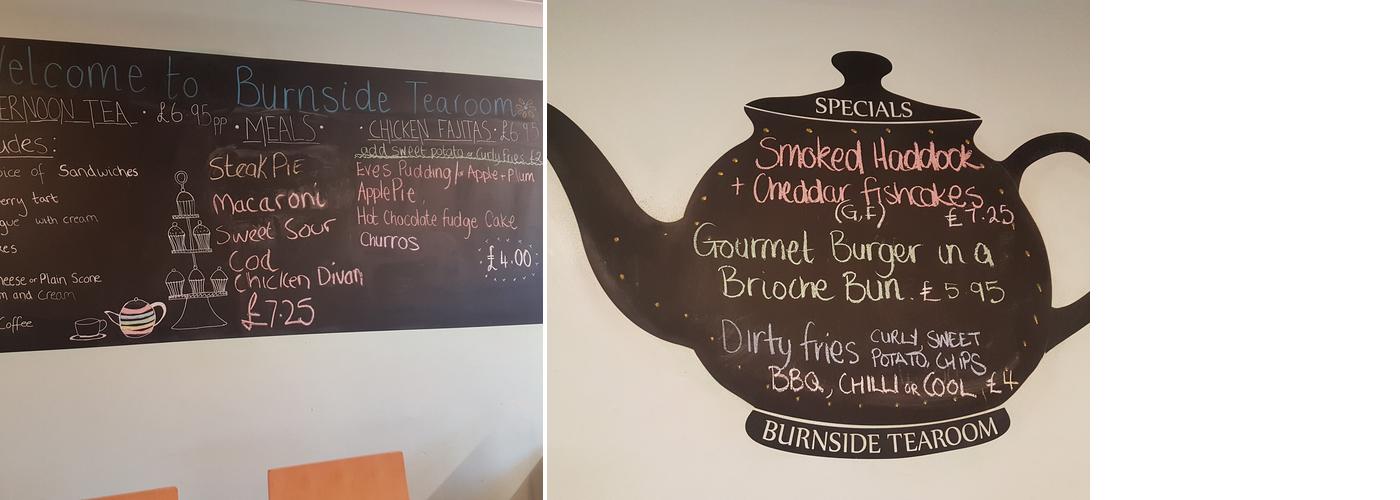 Welcome to Burnside Tearoom
ERNOON TEA · £6.95pp
udes:
oice of Sandwiches
erry tart
gue with cream
kes
heese or Plain Scone
m and Cream
Coffee
· MEALS ·
Steak Pie
Macaroni
Sweet Sour
Cod
Chicken Divan
£7.25
· CHICKEN FAJITAS · £6.95
add sweet potato or Curly Fries £2
Eves Pudding/Apple + Plum
Apple Pie,
Hot Chocolate fudge Cake
Churros
£4.00
SPECIALS
Smoked Haddock
+ Cheddar fishcakes
(G,F) £7.25
Gourmet Burger in a
Brioche Bun. £5.95
Dirty fries CURLY, SWEET
POTATO, CHIPS
BBQ, CHILLI OR COOL £4
BURNSIDE TEAROOM